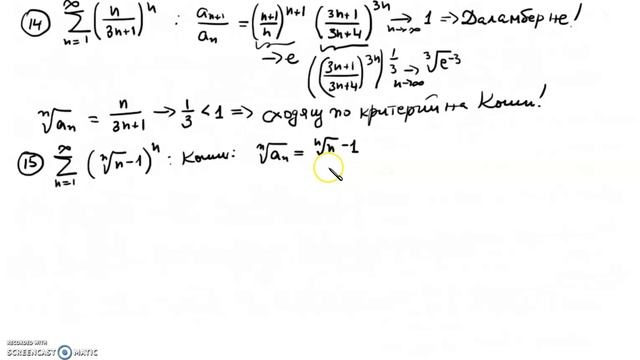 ⑭ ∑_{n=1}^{∞} (n/(3n+1))^n : a_{n+1}/a_n = ((n+1)/n)^{n+1} ((3n+1)/(3n+4))^{3n} →_{n→∞} 1 ⇒ Даламбер не!
→ e (((3n+1)/(3n+4))^{3n})^{1/3} →_{n→∞} ∛(e^{-3})
ⁿ√a_n = n/(3n+1) → 1/3 < 1 ⇒ сходящ по критерий на Коши!
⑮ ∑_{n=1}^{∞} (ⁿ√n - 1)^n : Коши: ⁿ√a_n = ⁿ√n - 1
RECORDED WITH
SCREENCAST MATIC